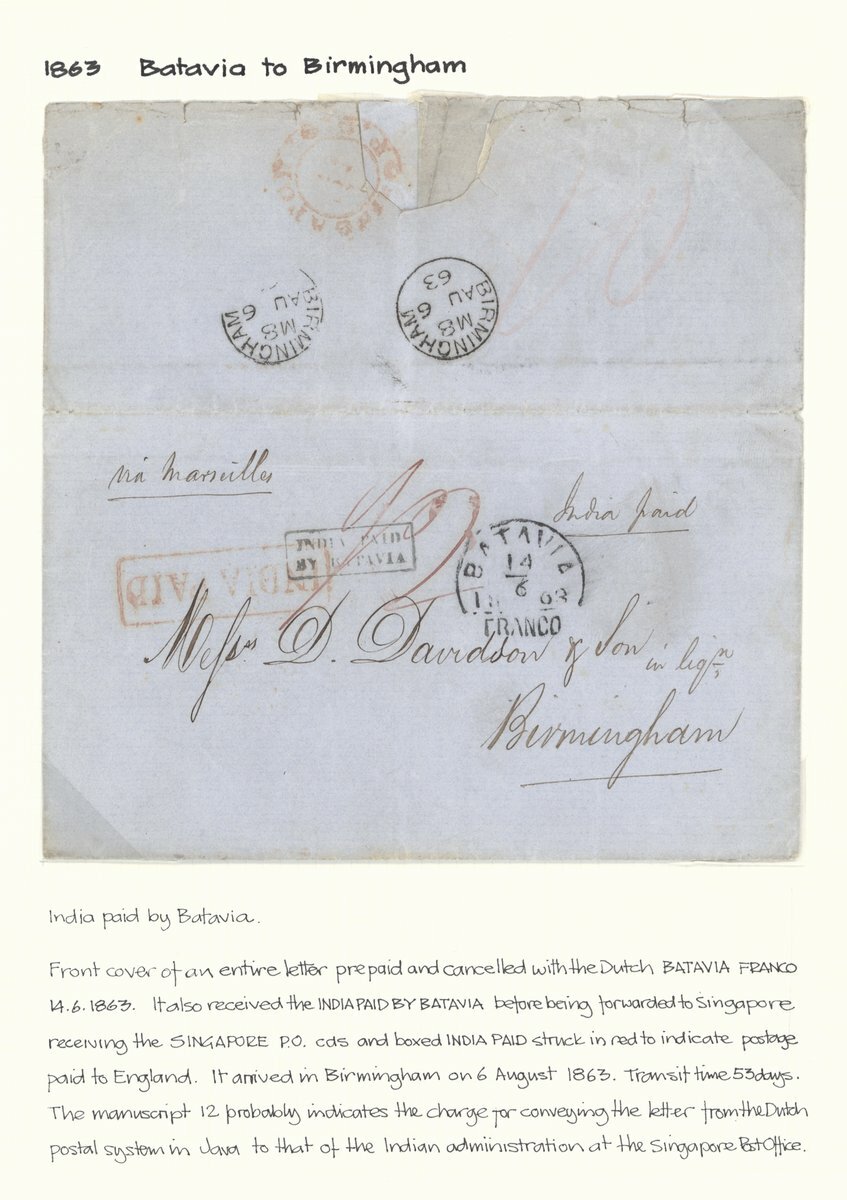 1863 Batavia to Birmingham
SINGAPORE P.O.
BIRMINGHAM
M8
AU 6
BIRMINGHAM
M8
AU 6
63
via Marseilles
India paid
12
INDIA PAID
BY BATAVIA
INDIA PAID
BATAVIA
14
6
63
FRANCO
Messrs D. Davidson & Son in liqn
Birmingham
India paid by Batavia.
Front cover of an entire letter prepaid and cancelled with the Dutch BATAVIA FRANCO
14.6.1863. It also received the INDIA PAID BY BATAVIA before being forwarded to Singapore
receiving the SINGAPORE P.O. cds and boxed INDIA PAID struck in red to indicate postage
paid to England. It arrived in Birmingham on 6 August 1863. Transit time 53 days.
The manuscript 12 probably indicates the charge for conveying the letter from the Dutch
postal system in Java to that of the Indian administration at the Singapore Post Office.